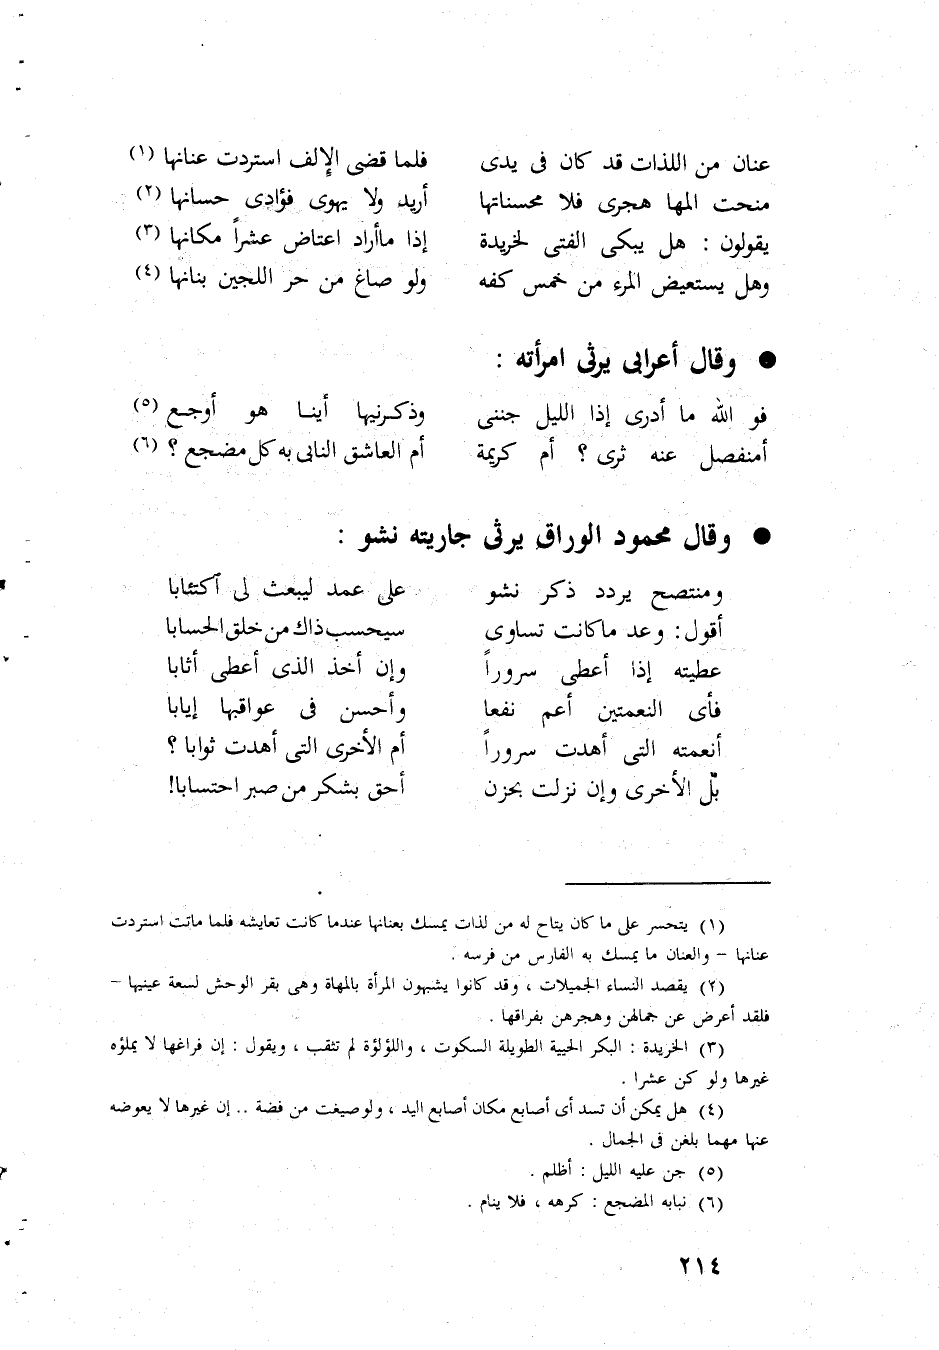 عنان من اللذات قد كان فى يدى فلما قضى الإلف استردت عنانها (١)
منحت المها هجرى فلا محسناتها أريد ولا يهوى فؤادى حسانها (٢)
يقولون : هل يبكى الفتى لخريدة إذا ماأراد اعتاض عشراً مكانها (٣)
وهل يستعيض المرء من خمس كفه ولو صاغ من حر اللجين بنانها (٤)
● وقال أعرابى يرثى امرأته :
فو الله ما أدرى إذا الليل جننى وذكـرنيها أينـا هو أوجـع (٥)
أمنفصل عنه ثرى ؟ أم كريمة أم العاشق النابى به كل مضجع ؟ (٦)
● وقال محمود الوراق يرثى جاريته نشو :
ومنتصح يردد ذكر نشو على عمد ليبعث لى اكتئابا
أقول : وعد ماكانت تساوى سيحسب ذاك من خلق الحسابا
عطيته إذا أعطى سروراً وإن أخذ الذى أعطى أثابا
فأى النعمتين أعم نفعا وأحسن فى عواقبها إيابا
أنعمته التى أهدت سروراً أم الأخرى التى أهدت ثوابا ؟
بل الأخرى وإن نزلت بحزن أحق بشكر من صبر احتسابا!
(١) يتحسر على ما كان يتاح له من لذات يمسك بعنانها عندما كانت تعايشه فلما ماتت استردت
عنانها – والعنان ما يمسك به الفارس من فرسه .
(٢) يقصد النساء الجميلات ، وقد كانوا يشبهون المرأة بالمهاة وهى بقر الوحش لسعة عينيها –
فلقد أعرض عن جمالهن وهجرهن بفراقها .
(٣) الخريدة : البكر الحيية الطويلة السكوت ، واللؤلؤة لم تثقب ، ويقول : إن فراغها لا يملؤه
غيرها ولو كن عشرا .
(٤) هل يمكن أن تسد أى أصابع مكان أصابع اليد ، ولو صيغت من فضة .. إن غيرها لا يعوضه
عنها مهما بلغن فى الجمال .
(٥) جن عليه الليل : أظلم .
(٦) نبابه المضجع : كرهه ، فلا ينام .
٢١٤